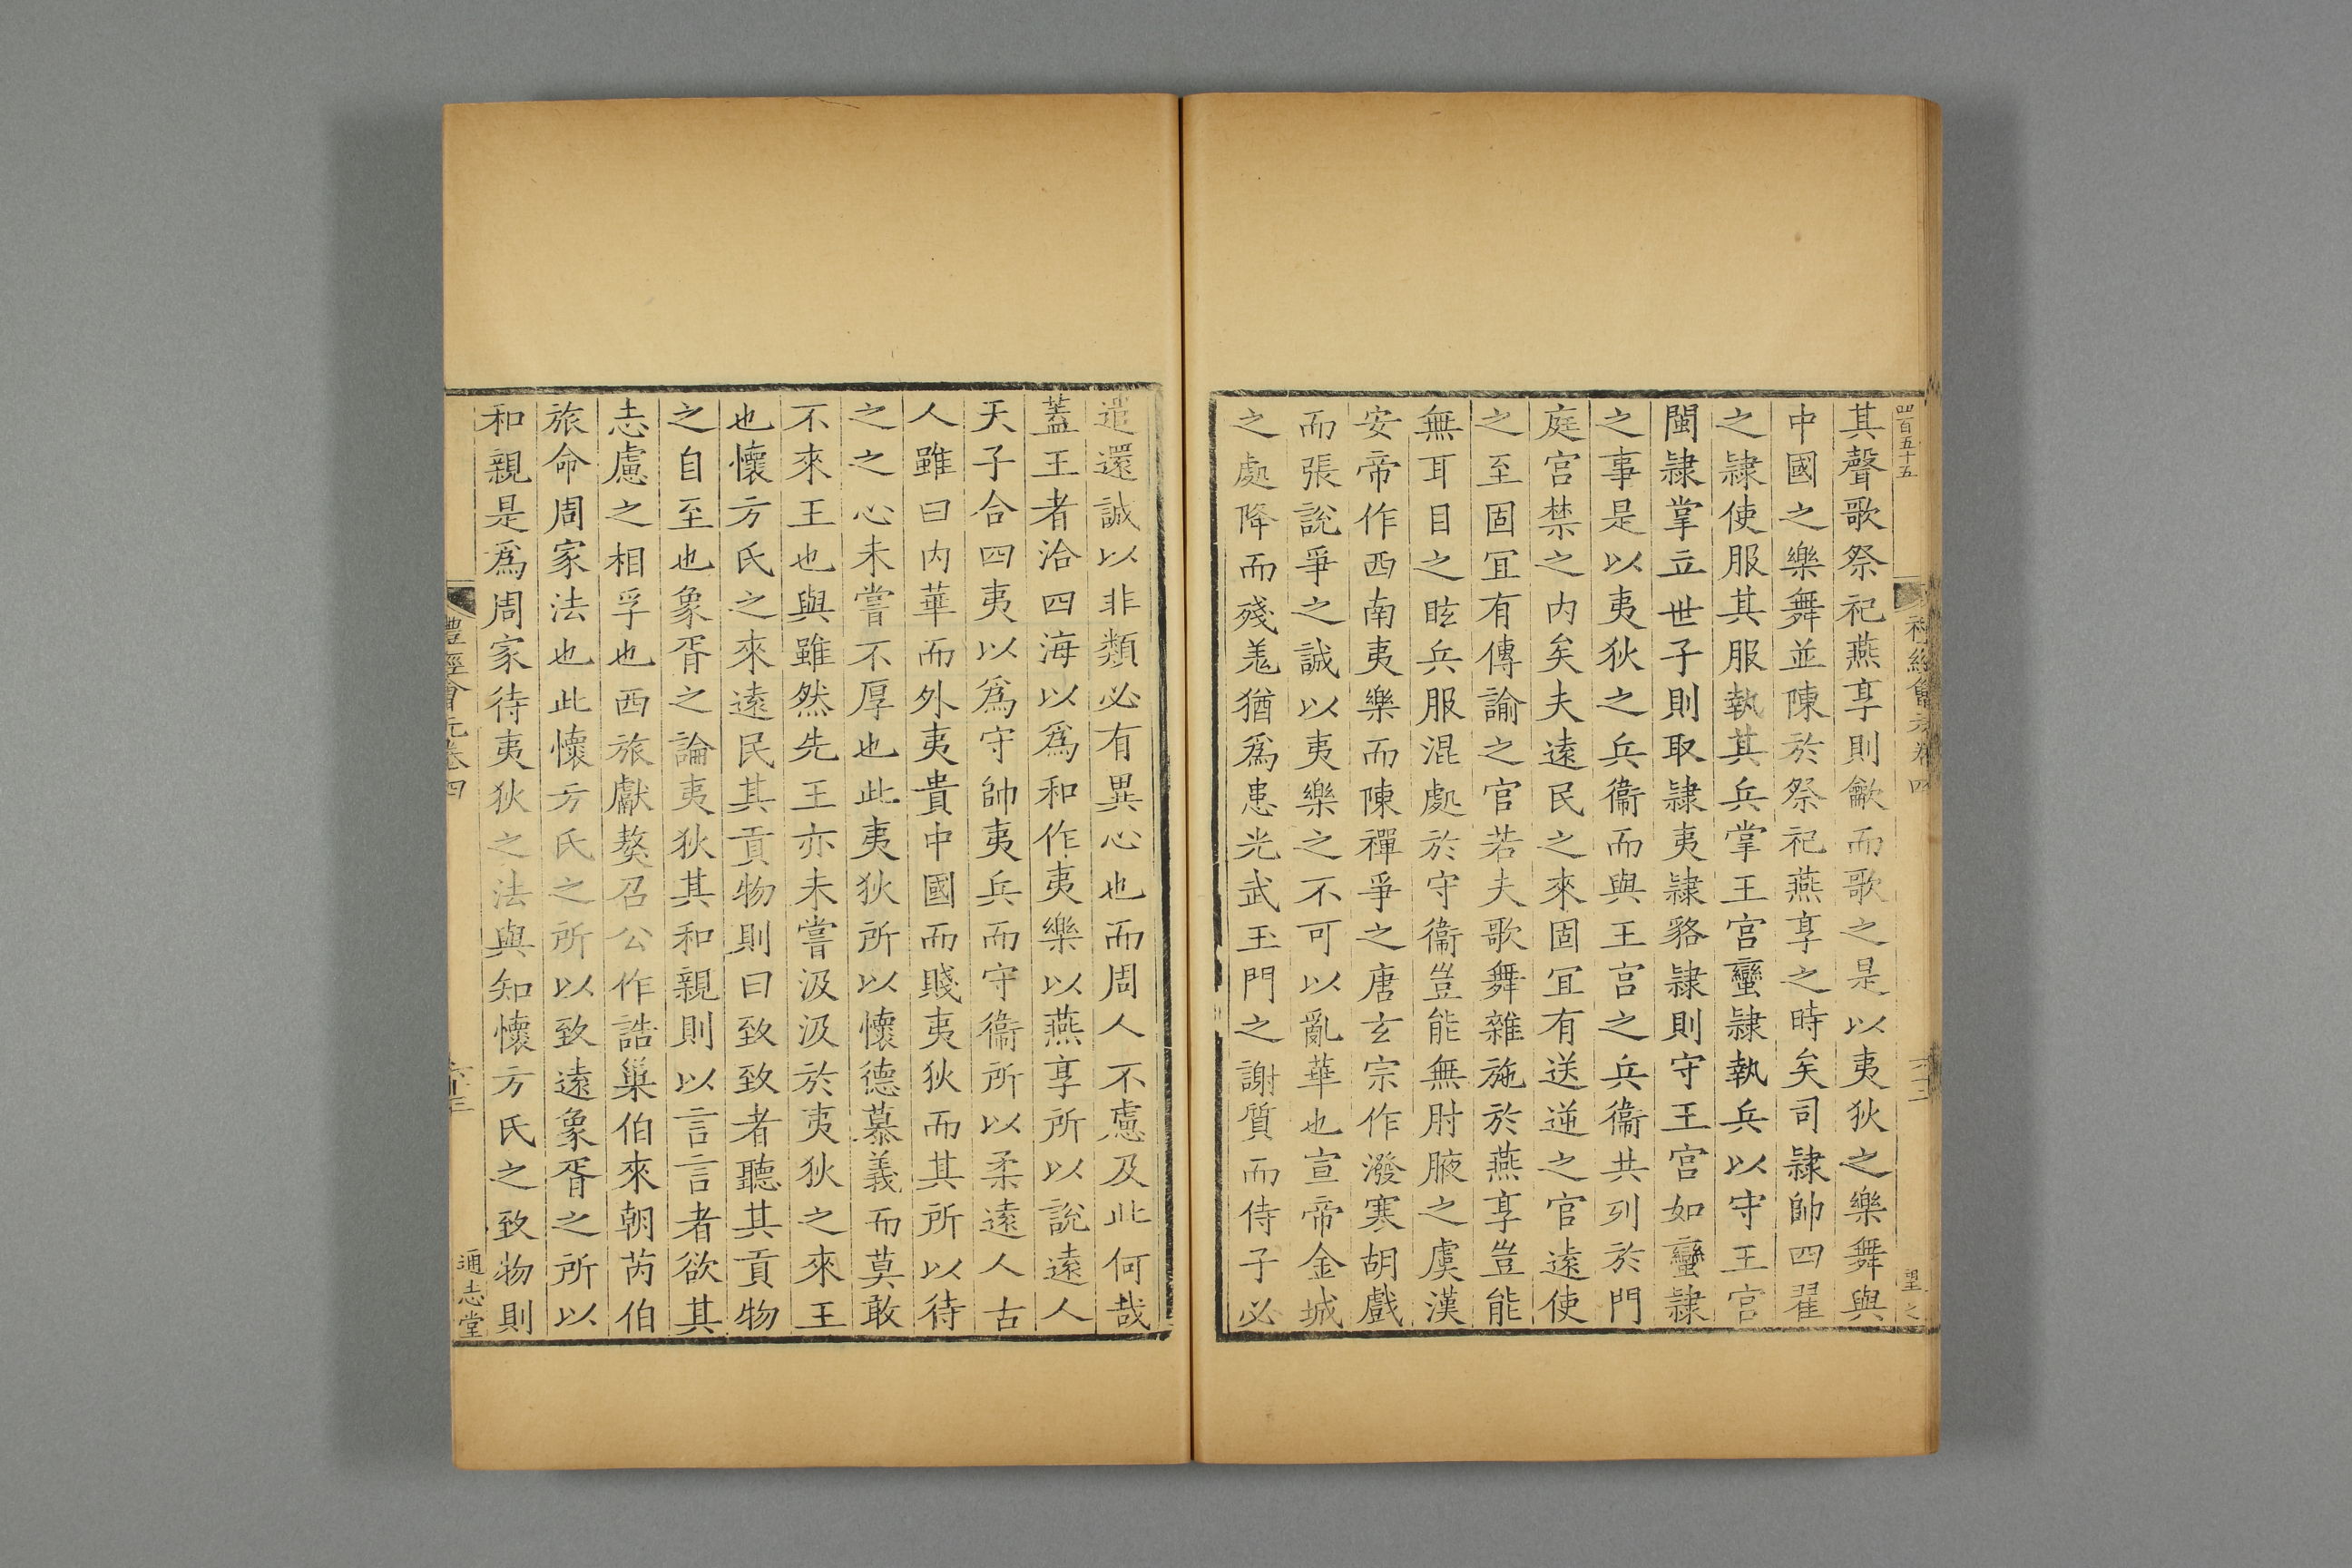 四百五十五
禮經會元卷四
六十二
望之
其聲歌祭祀燕享則龡而歌之是以夷狄之樂舞與
中國之樂舞並陳於祭祀燕享之時矣司隷帥四翟
之隷使服其服執其兵掌王宫蠻隷執兵以守王宫
閩隷掌立世子則取隷夷隷貉隷則守王宫如蠻隷
之事是以夷狄之兵衞而與王宫之兵衞共列於門
庭宫禁之内矣夫逺民之來固宜有送逆之官逺使
之至固宜有傳諭之官若夫歌舞雜施於燕享豈能
無耳目之眩兵服混處於守衞豈能無肘腋之虞漢
安帝作西南夷樂而陳禪爭之唐玄宗作潑寒胡戲
而張說爭之誠以夷樂之不可以亂華也宣帝金城
之處降而殘羌猶爲患光武玉門之謝質而侍子必
遣還誠以非類必有異心也而周人不慮及此何哉
蓋王者洽四海以爲和作夷樂以燕享所以說逺人
天子合四夷以爲守帥夷兵而守衞所以柔逺人古
人雖曰内華而外夷貴中國而賤夷狄而其所以待
之之心未嘗不厚也此夷狄所以懷德慕義而莫敢
不來王也與雖然先王亦未嘗汲汲於夷狄之來王
也懷方氏之來逺民其貢物則曰致致者聽其貢物
之自至也象胥之論夷狄其和親則以言言者欲其
志慮之相孚也西旅獻獒召公作誥巢伯來朝芮伯
旅命周家法也此懷方氏之所以致逺象胥之所以
和親是爲周家待夷狄之法與知懷方氏之致物則
禮經會元卷四
六十三
通志堂